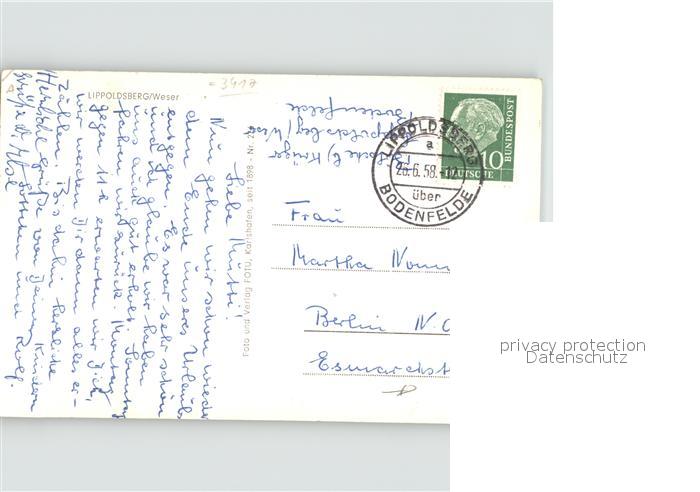 = 3417
LIPPOLDSBERG/Weser
Liebe Mutti!
Nun gehn wir schon wieder
dem Ende unseres Urlaubs
entgegen. Es war sehr schön
und ich glaube wir haben
uns auch gut erholt. Sonntag
fahren wir zurück. Montag
gegen 11 h erwarten wir Dich,
wir werden Dir dann alles er-
zählen. Bis dahin herzliche
Herzliche Grüße von Deinen Kindern
und Rolf.
Foto und Verlag FOTU, Karlshafen, seit 1898 - Nr.
Krüger
Lippoldsberg/Weser
Bodenfelde
LIPPOLDSBERG
a
26.6.58.
über
BODENFELDE
10
DEUTSCHE
BUNDESPOST
Frau
Martha
Berlin N.
Esmarchst
privacy protection
Datenschutz